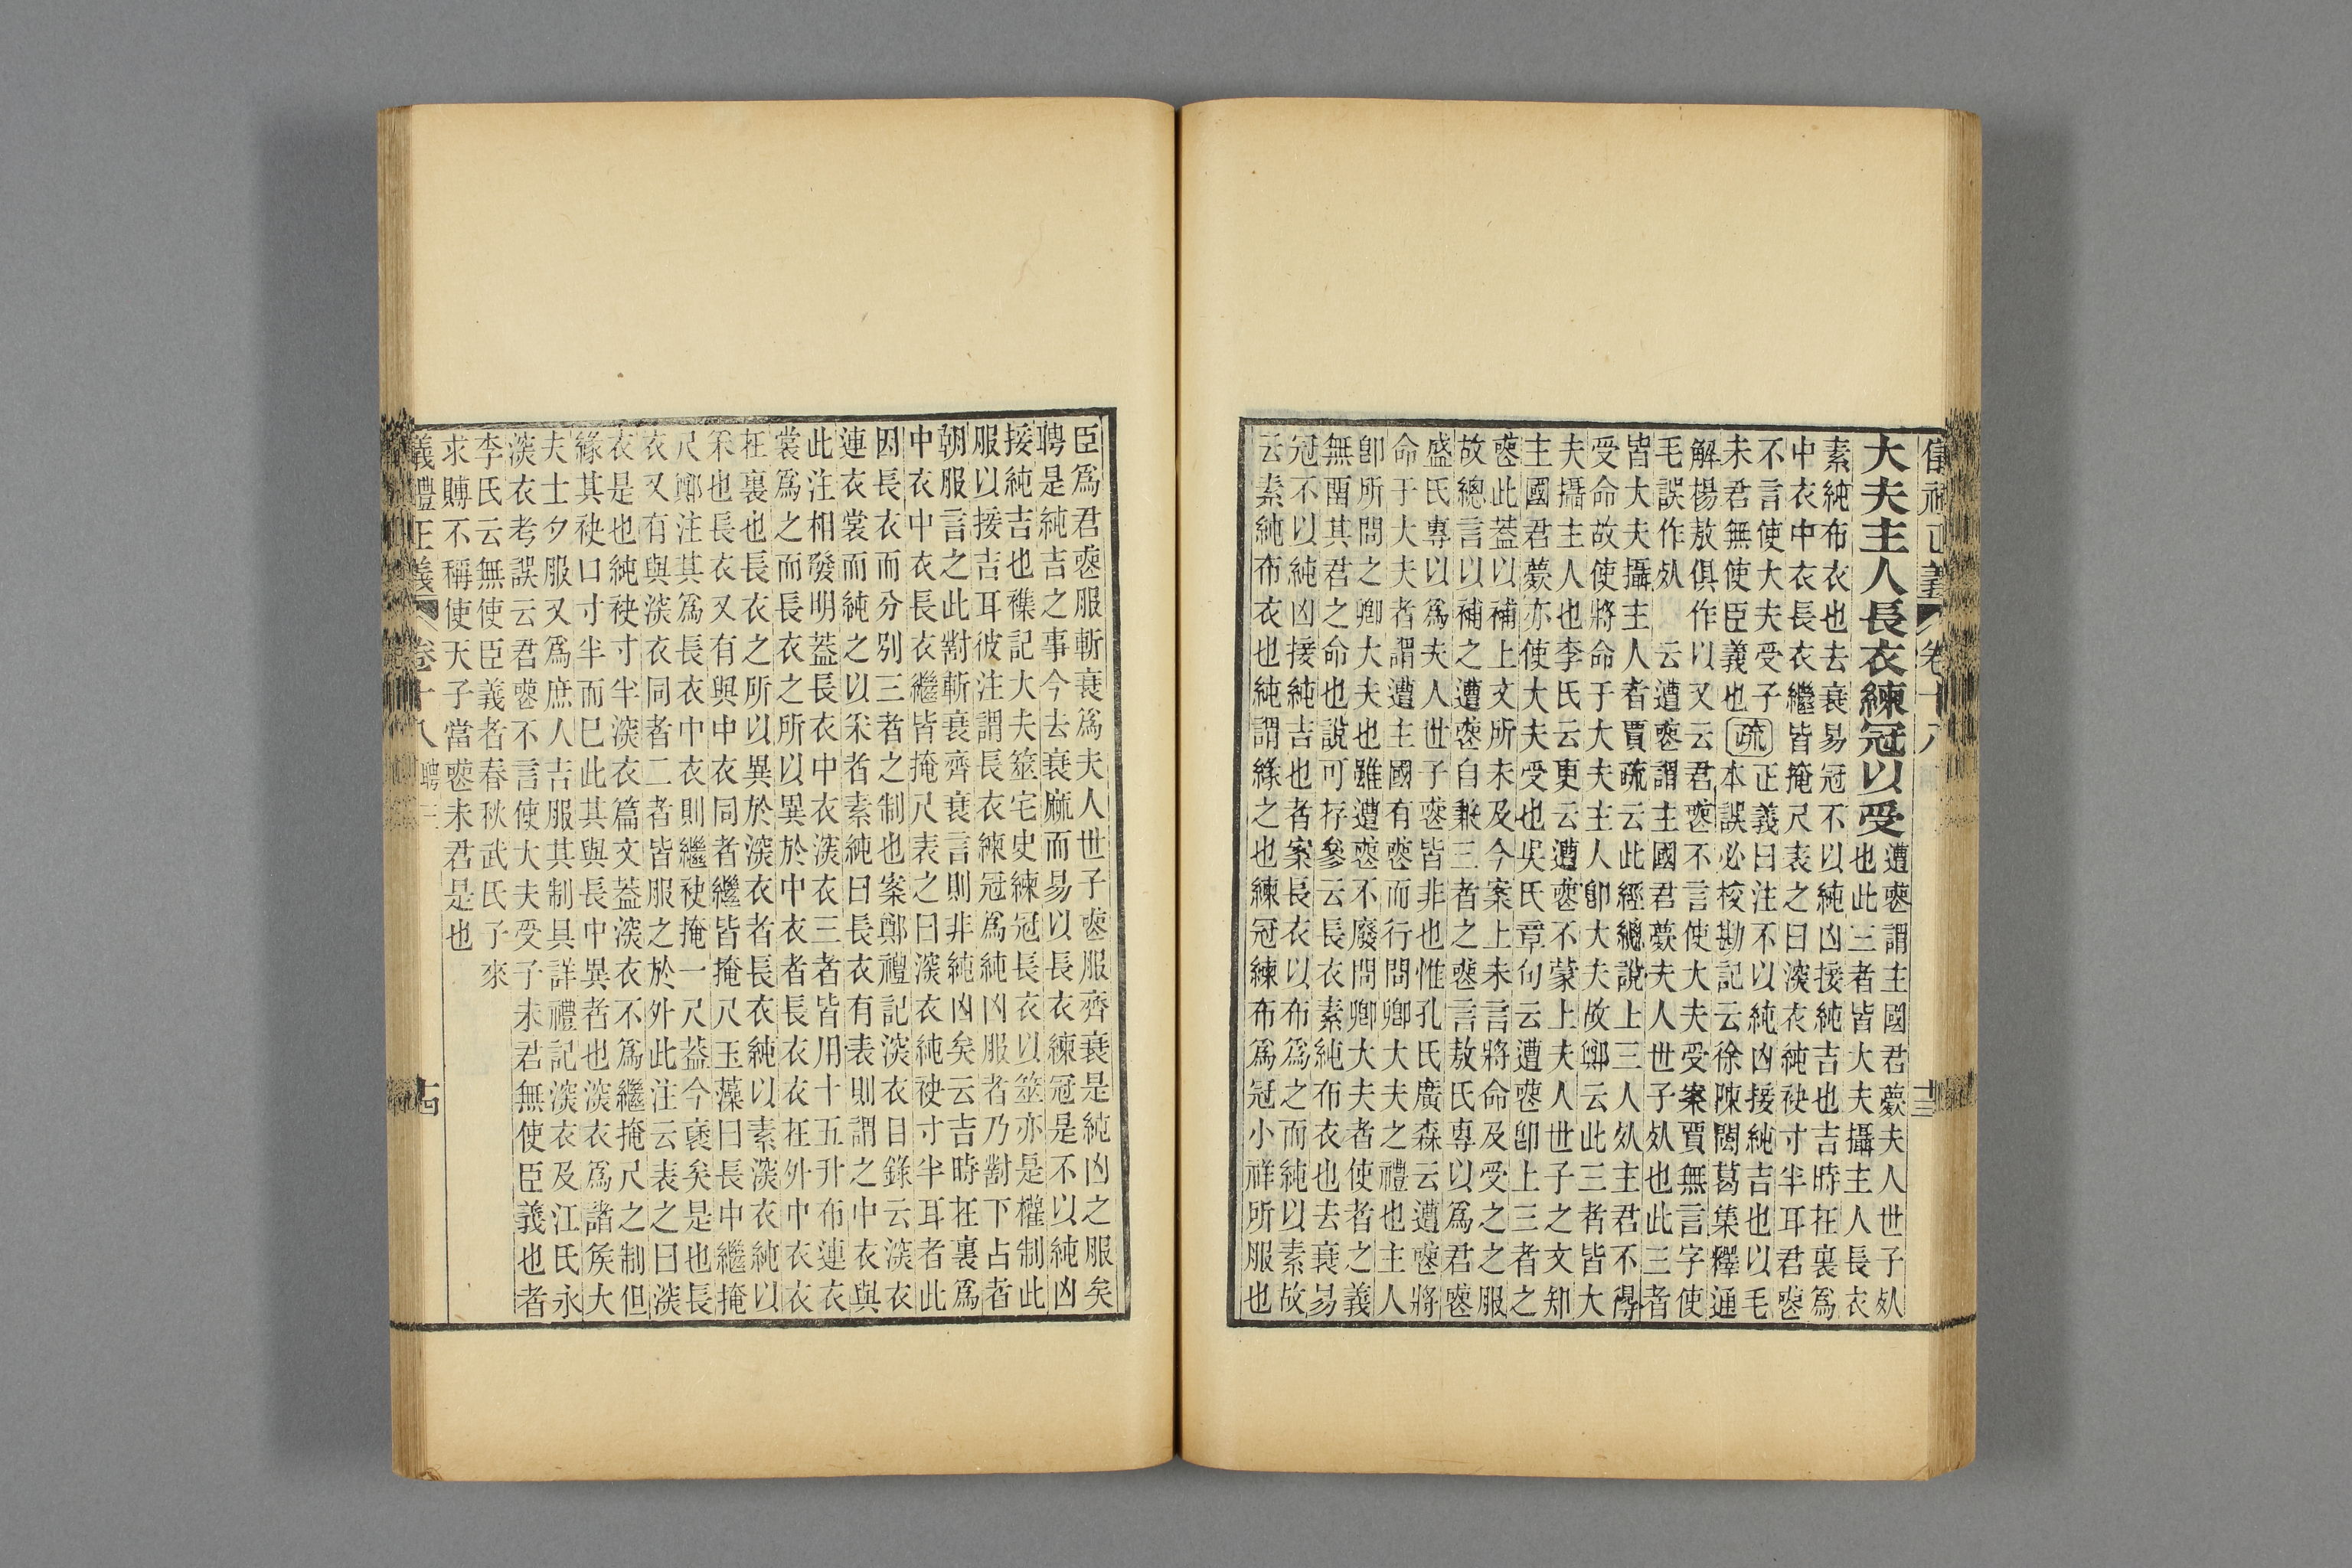 正義 卷十八 十三
大夫主人長衣練冠以受
遭喪謂主國君薨夫人世子死
也此三者皆大夫攝主人長衣
素純布衣也去衰易冠不以純凶接純吉也吉時在裏爲
中衣中衣長衣繼皆掩尺表之曰深衣純袂寸半耳君喪
不言使大夫受子
未君無使臣義也
疏
正義曰注不以純凶接純吉也以毛
本誤必校勘記云徐陳閩葛集釋通
解楊敖俱作以又云君喪不言使大夫受案賈無言字使
毛誤作死 云遭喪謂主國君薨夫人世子死也此三者
皆大夫攝主人者賈疏云此經總說上三人死主君不得
受命故使將命于大夫主人卽大夫故鄭云此三者皆大
夫攝主人也李氏云更云遭喪不蒙上夫人世子之文知
主國君薨亦使大夫受也吳氏章句云遭喪卽上三者之
喪此蓋以補上文所未及今案上未言將命及受之之服
故總言以補之遭喪自兼三者之喪言敖氏專以爲君喪
盛氏專以爲夫人世子喪皆非也惟孔氏廣森云遭喪將
命于大夫者謂遭主國有喪而行問卿大夫之禮也主人
卽所問之卿大夫也雖遭喪不廢問卿大夫者使者之義
無畱其君之命也說可存參云長衣素純布衣也去衰易
冠不以純凶接純吉也者案長衣以布爲之而純以素故
云素純布衣也純謂緣之也練冠練布爲冠小祥所服也
臣爲君喪服斬衰爲夫人世子喪服齊衰是純凶之服矣
聘是純吉之事今去衰麻而易以長衣練冠是不以純凶
接純吉也襍記大夫筮宅史練冠長衣以筮亦是權制此
服以接吉耳彼注謂長衣練冠爲純凶服者乃對下占者
朝服言之此對斬衰齊衰言則非純凶矣云吉時在裏爲
中衣中衣長衣繼皆掩尺表之曰深衣純袂寸半耳者此
因長衣而分別三者之制也案鄭禮記深衣目錄云深衣
連衣裳而純之以采者素純曰長衣有表則謂之中衣與
此注相發明蓋長衣中衣深衣三者皆用十五升布連衣
裳爲之而長衣之所以異於中衣者長衣衣在外中衣衣
在裏也長衣之所以異於深衣者長衣純以素深衣純以
采也長衣又有與中衣同者繼皆掩尺玉藻曰長中繼掩
尺鄭注其爲長衣中衣則繼袂掩一尺蓋今褎矣是也長
衣又有與深衣同者二者皆服之於外此注云表之曰深
衣是也純袂寸半深衣篇文蓋深衣不爲繼掩尺之制但
緣其袂口寸半而已此其與長中異者也深衣爲諸侯大
夫士夕服又爲庶人吉服其制具詳禮記深衣及江氏永
深衣考誤云君喪不言使大夫受子未君無使臣義也者
李氏云無使臣義者春秋武氏子來
求賻不稱使天子當喪未君是也
義禮正義 卷十八 聘三 十四